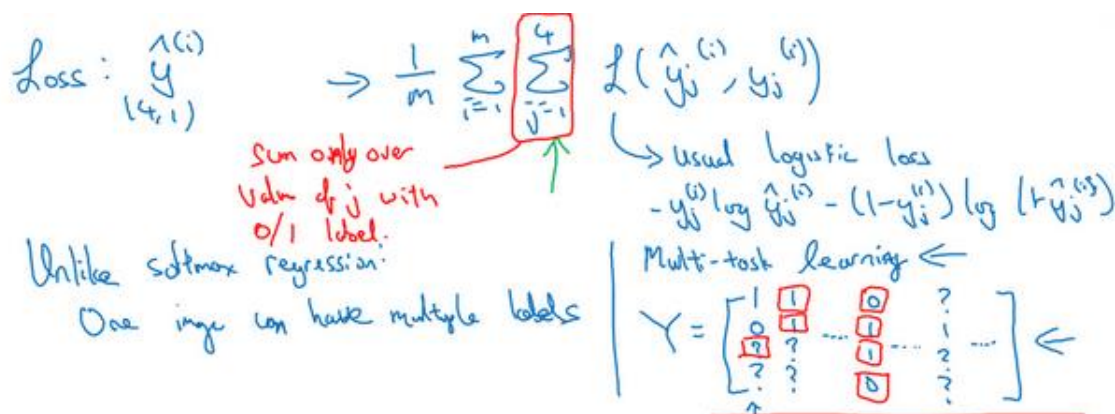 Loss: ŷ^(i) → 1/m Σ_{i=1}^{m} Σ_{j=1}^{4} L(ŷ_j^(i), y_j^(i))
(4,1)
Sum only over
value of j with
0/1 label.
→ usual logistic loss
- y_j^(i) log ŷ_j^(i) - (1-y_j^(i)) log (1-ŷ_j^(i))
Unlike softmax regression:
One image can have multiple labels
Multi-task learning ←
Y = [
1 1 0 ?
0 1 .... 1 .... 1 ....
? ? 1 ?
? ? 0 ?
] ←